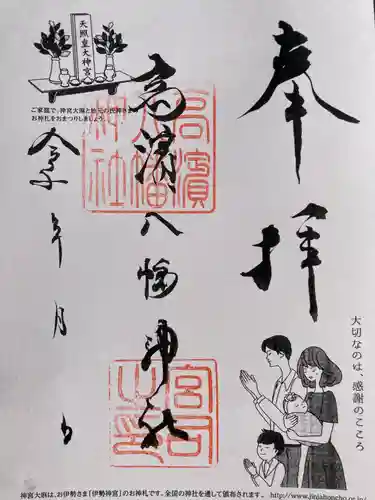 奉拝
大切なのは、感謝のこころ
高濱八幡神社
高濱八幡神社
宮司之印
令和 年 月 日
天照皇大神宮
ご家庭で、神宮大麻と地元の氏神さまの
お神札をおまつりしましょう。
http://www.jinjahoncho.or.jp/
神宮大麻は、お伊勢さま「伊勢神宮」のお神札です。全国の神社を通して頒布されます。